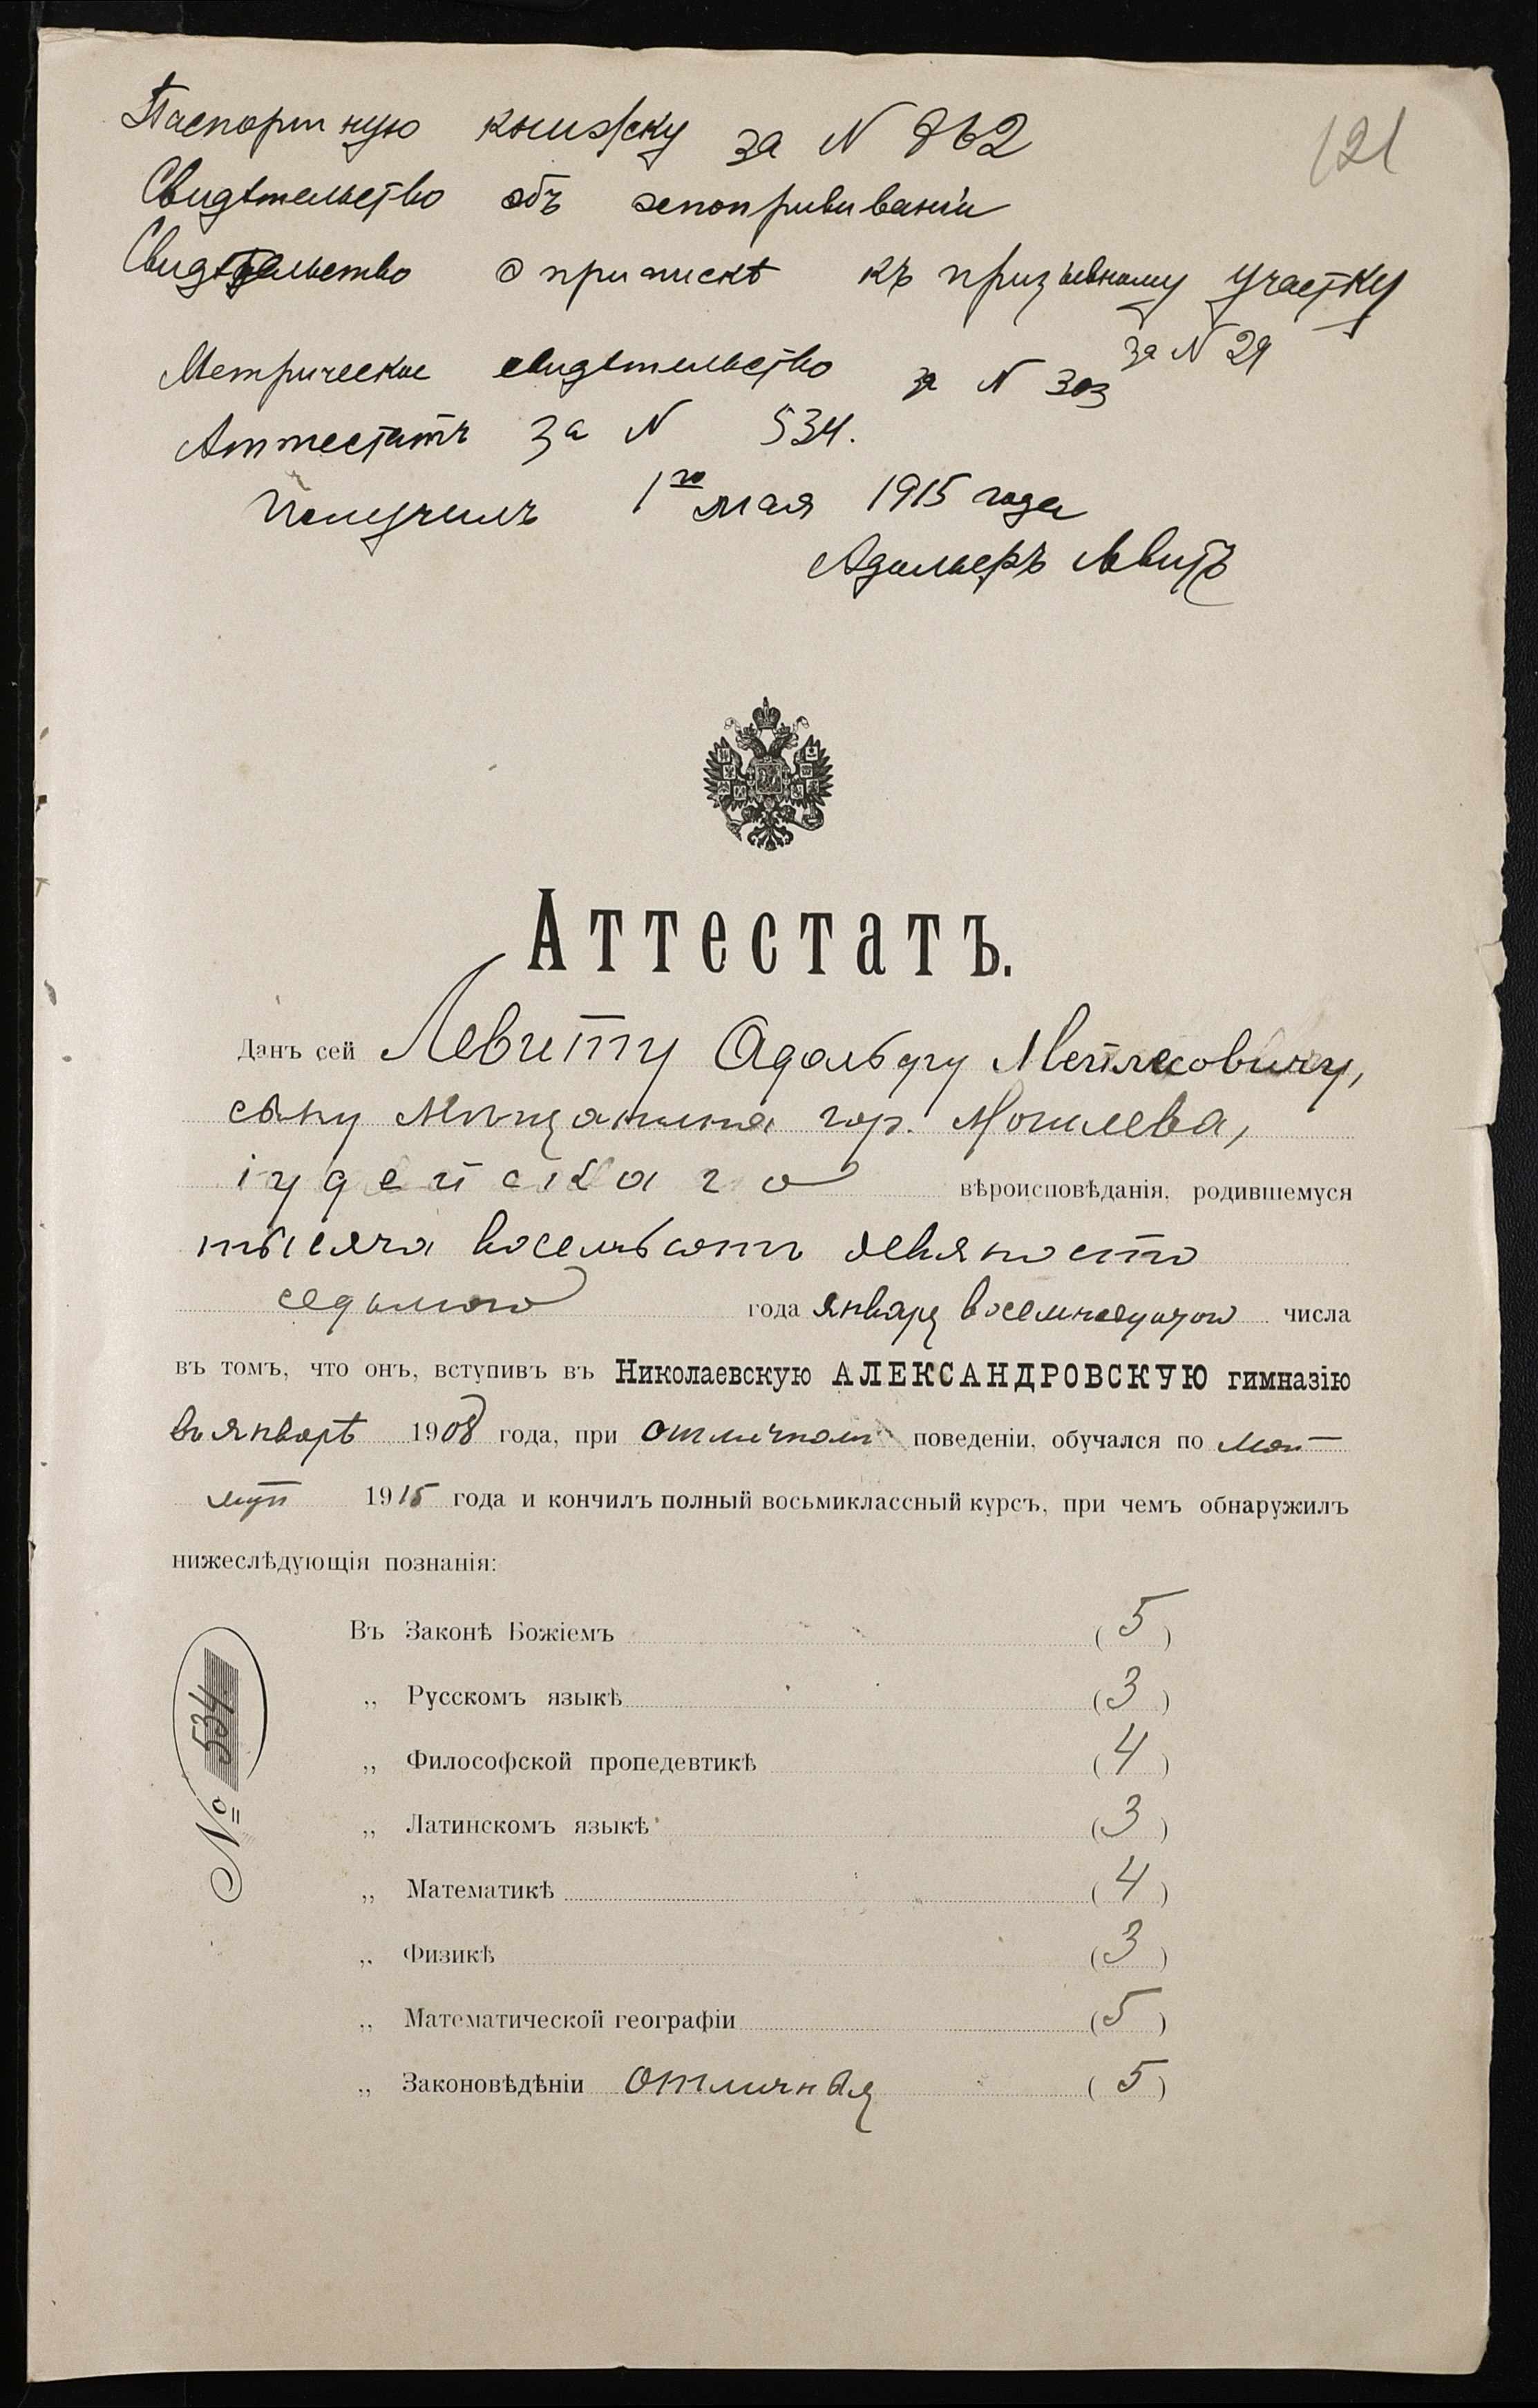 Паспортную книжку за N 862
121
Свидѣтельство объ оспопрививаніи
Свидѣтельство о припискѣ къ призывному участку
за N 29
Метрическое свидѣтельство за N 303
Аттестатъ за N 534.
Получилъ 1го мая 1915 года
Адольфъ Левитъ
Аттестатъ.
Данъ сей Левиту Адольфу
сыну мѣщанина гор. Могилева,
іудейскаго вѣроисповѣданія, родившемуся
тысяча восемьсотъ девяносто
седьмого года января восемнадцатаго числа
въ томъ, что онъ, вступивъ въ Николаевскую АЛЕКСАНДРОВСКУЮ гимназію
въ январѣ 1908 года, при отличномъ поведеніи, обучался по
1915 года и кончилъ полный восьмиклассный курсъ, при чемъ обнаружилъ
нижеслѣдующія познанія:
№ 534
Въ Законѣ Божіемъ (5)
„ Русскомъ языкѣ (3)
„ Философской пропедевтикѣ (4)
„ Латинскомъ языкѣ (3)
„ Математикѣ (4)
„ Физикѣ (3)
„ Математической географіи (5)
„ Законовѣдѣніи отличныя (5)